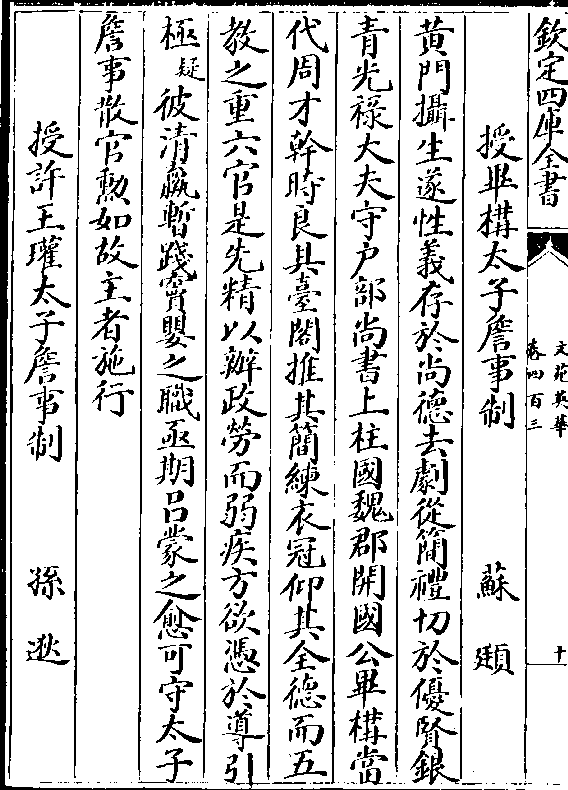 欽定四庫全書
文苑英華
卷四百三
十
授畢構太子詹事制 蘇頲
黃門攝生遂性義存於尚德去劇從簡禮切於優賢銀
青光祿大夫守户部尚書上柱國魏郡開國公畢構當
代周才幹時良具臺閣推其簡練衣冠仰其全德而五
教之重六官是先精以辦政勞而弱疾方欲憑於導引
極疑彼清羸暫踐竇嬰之職亟期吕蒙之愈可守太子
詹事散官勲如故主者施行
授許王瓘太子詹事制 孫逖